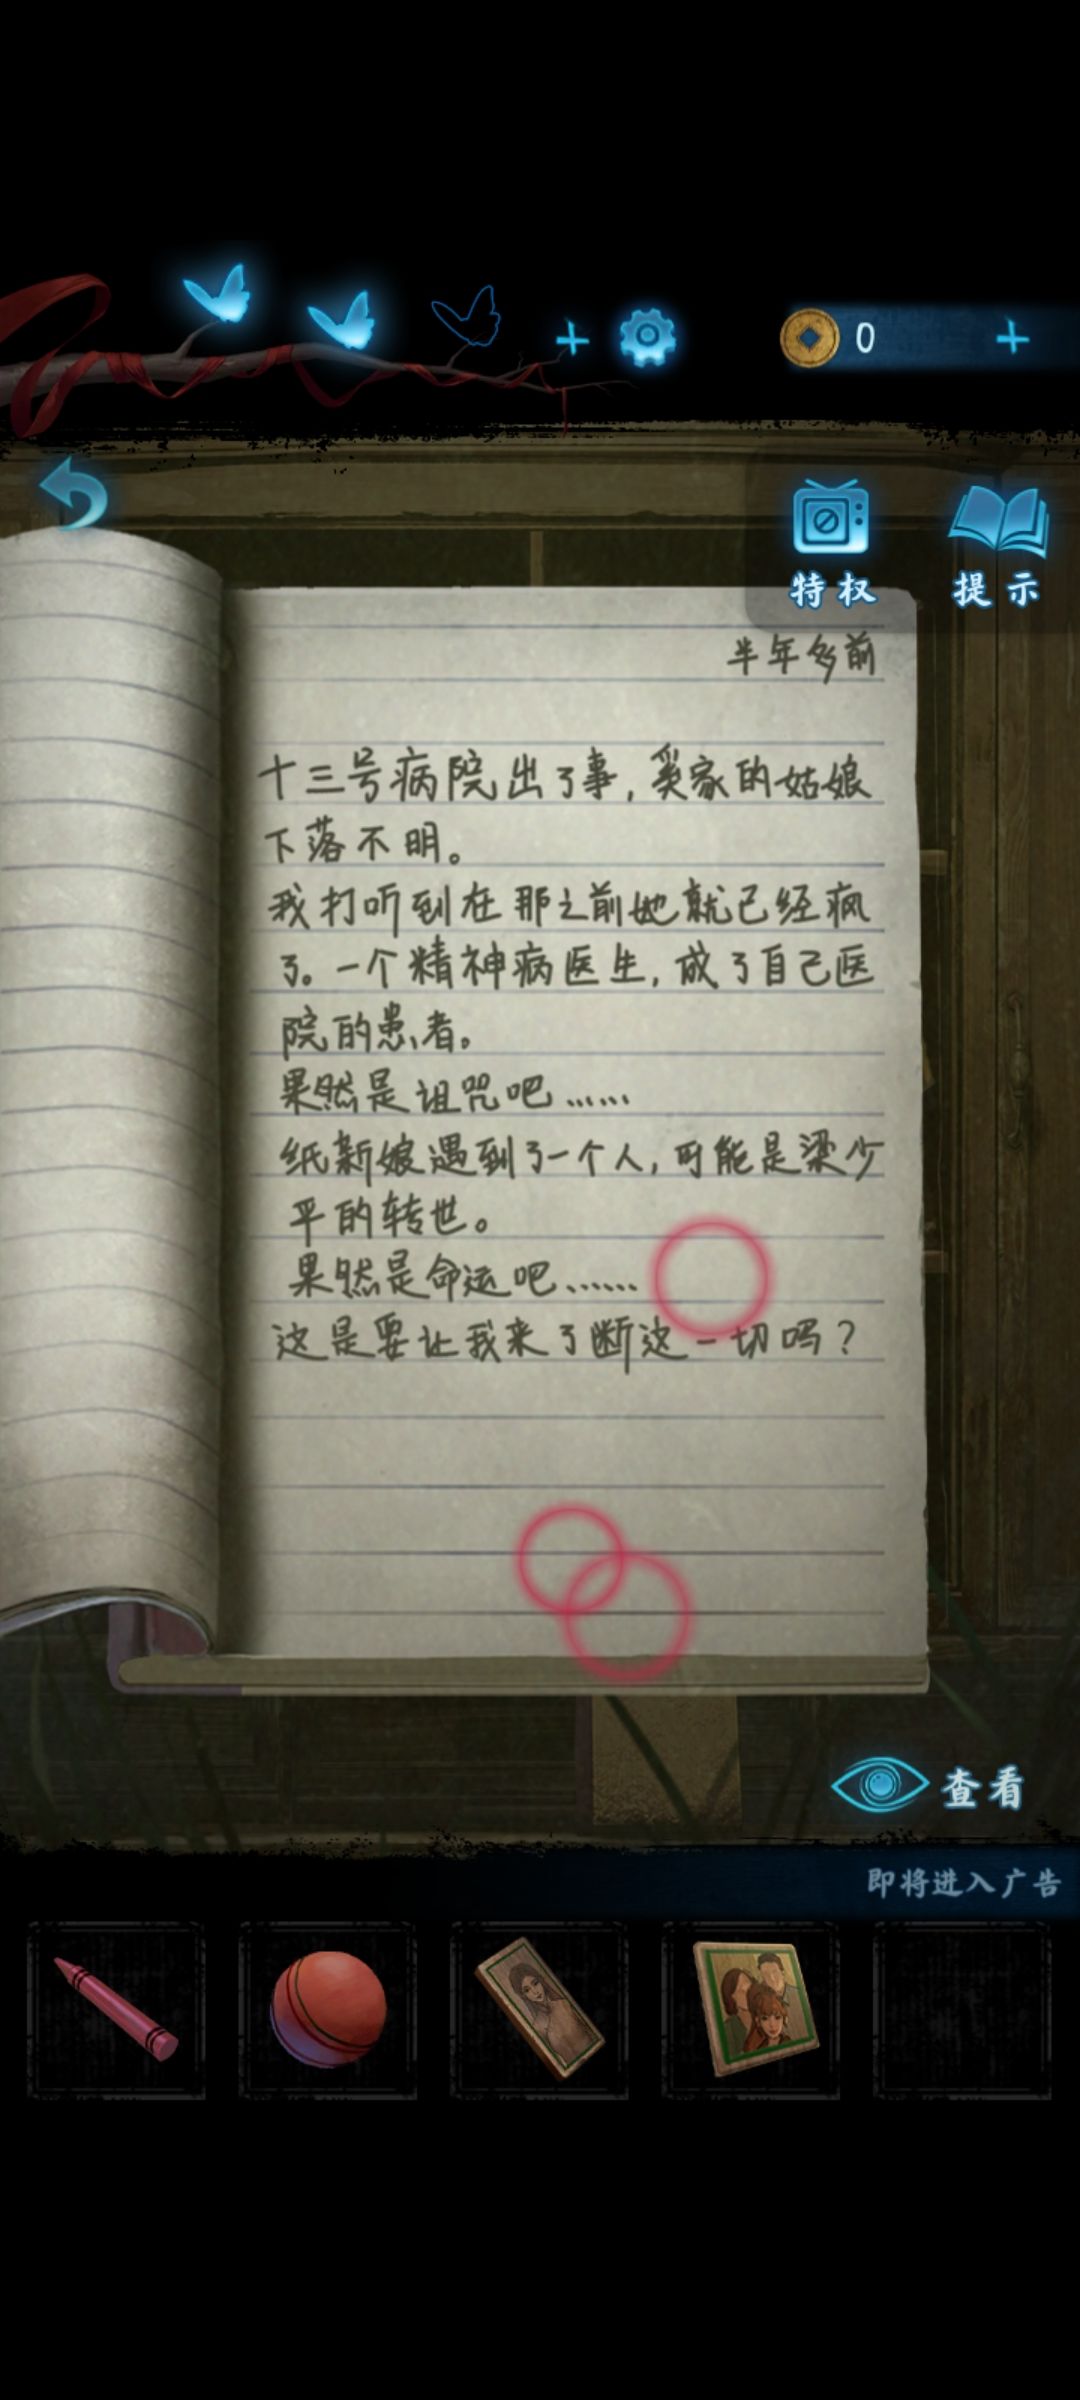 0
特权
提示
半年多前
十三号病院出了事，奚家的姑娘
下落不明。
我打听到在那之前她就已经疯
了。一个精神病医生，成了自己医
院的患者。
果然是诅咒吧……
纸新娘遇到了一个人，可能是梁少
平的转世。
果然是命运吧……
这是要让我来了断这一切吗？
查看
即将进入广告